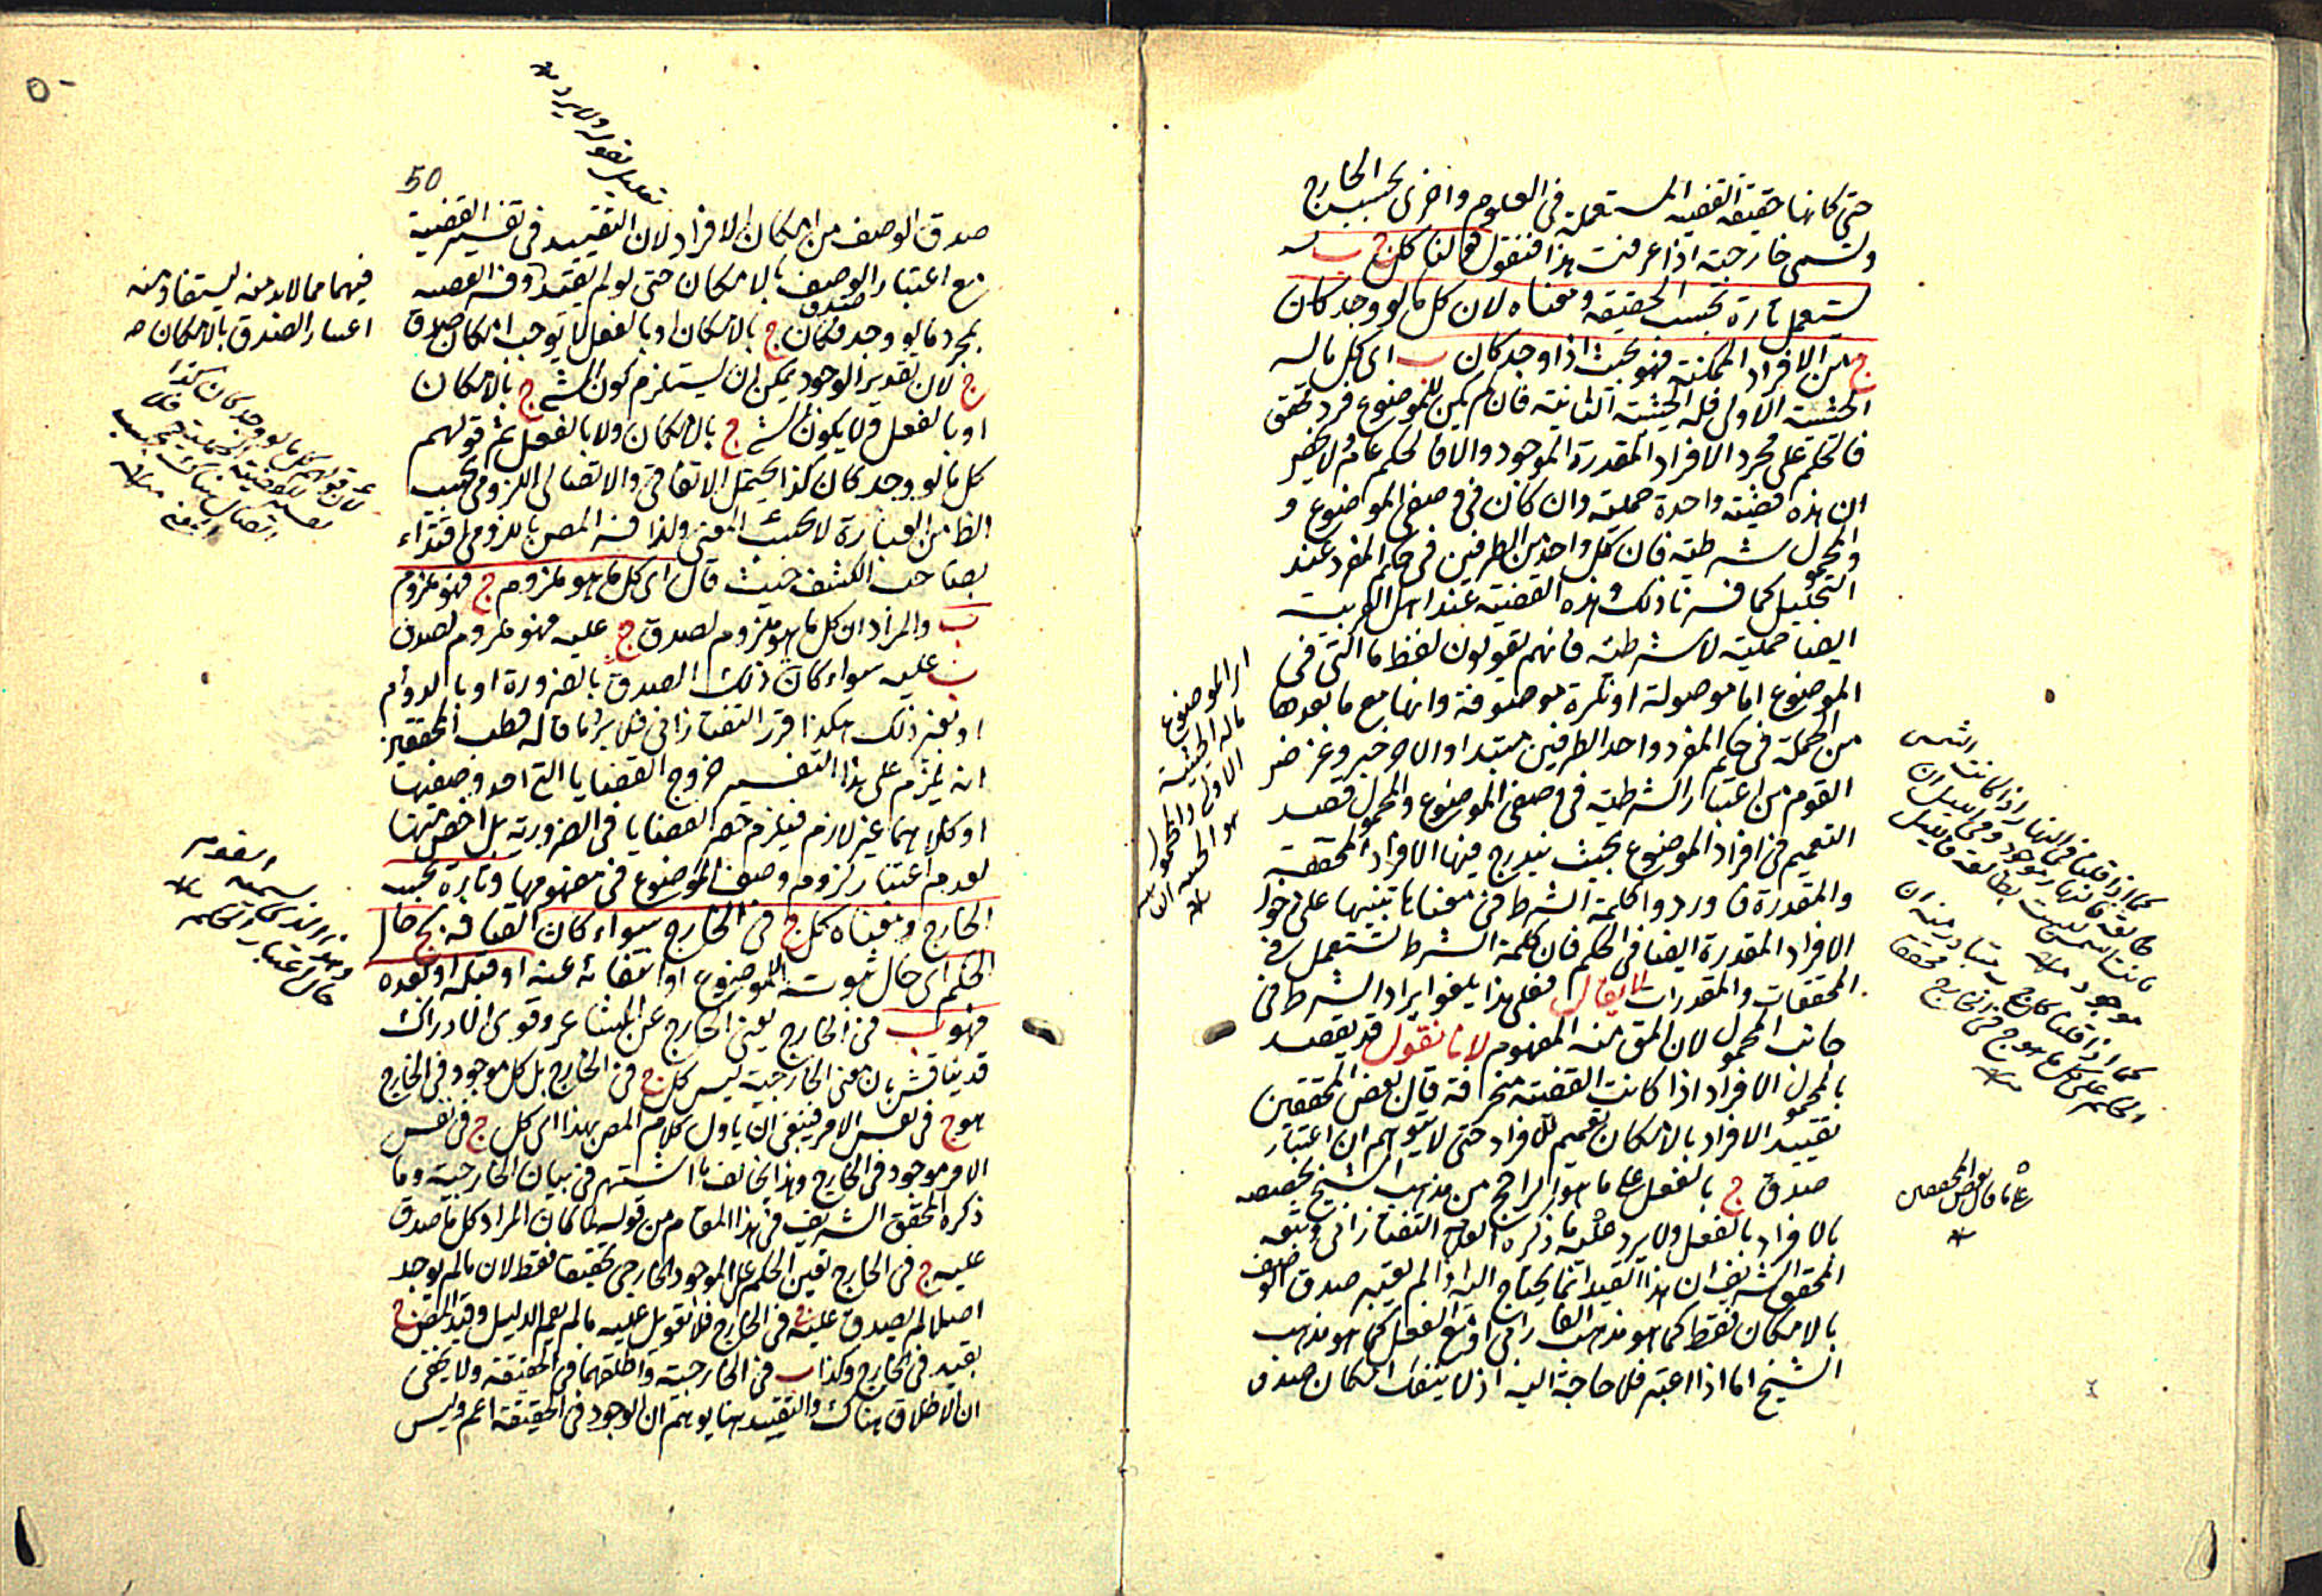 حتى كانها حقيقة القضية المستعملة فى العلوم واخرى بحسب الخارج
وتسمى خارجية اذا عرفت هذا فنقول قولنا كل ج ب
يستعمل تارة بحسب الحقيقة ومعناه لان كل ما لو وجد كان
ج من الافراد الممكنة فهو بحيث اذا وجد كان ب اى كل ما له
الحيثية الاولى فله الحيثية الثانية فان لم يكن للموضوع فرد محقق
فالحكم على مجرد الافراد المقدرة الموجود والا فالحكم عام
ان هذه قضية واحدة حملية وان كان فى وصفى الموضوع و
والمحمول شرطية فان كل واحد من الطرفين فى حكم المفرد عند
التحليل كما فسرنا ذلك وهذه القضية عند اهل العربية
ايضا حملية لا شرطية فانهم يقولون لفظ ما التى فى
الموضوع اما موصولة او نكرة موصوفة وانها مع ما بعدها
من الجملة فى حكم المفرد واحد الطرفين مبتدا والاخر خبر وغرض
القوم من اعتبار الشرطية فى وصفى الموضوع والمحمول قصد
التعميم فى افراد الموضوع بحيث يندرج فيها الافراد المحققة
والمقدرة فاوردوا كلمة الشرط فى معناها تنبيها على دخول
الافراد المقدرة ايضا فى الحكم فان كلمة الشرط تستعمل فى
المحققات والمقدرات لا يقال فعلى هذا يلغو ايراد الشرط فى
جانب المحمول لان المق منه المفهوم لانا نقول قد يقصد
بالمحمول الافراد اذا كانت القضية منحرفة قال بعض المحققين
تقييد الافراد بالامكان تعميم للافراد حتى لا يتوهم ان اعتبار
صدق ج بالفعل على ما هو الراجح من مذهب الشيخ يخصصه
بالافراد بالفعل ولا يرد عليه ما ذكره العلامة التفتازانى وتبعه
المحقق الشريف ان هذا القيد انما يحتاج اليه اذا لم يعتبر صدق الوصف
بالامكان فقط كما هو مذهب الفارابى او مع الفعل كما هو مذهب
الشيخ اما اذا اعتبر فلا حاجة اليه اذ لا ينفك امكان صدق
اى الموضوع
ما له الحيثية
الاولى والمحمول
كما اذا قلنا فى النهار اذا كانت الشمس
طالعة فالنهار موجود وفى الليل ان
كانت الشمس ليست بطالعة فالليل
موجود منه
كما اذا قلنا كل ج ب يتبادر منه ان
الحكم على كل ما هو ج فى الخارج محققا
منه
على ما قال بعض المحققين
50
تعليل لقوله ولا يرد
صدق الوصف من امكان الافراد لان التقييد فى تفسير القضية
مع اعتبار الوصف بالامكان حتى لو لم يقيد وفسر القضية
بمجرد ما لو وجد فكان ج بالامكان او بالفعل لا يوجب امكان صدق
ج لان تقدير الوجود يمكن ان يستلزم كون الشئ ج بالامكان
او بالفعل ولا يكون الشئ ج بالامكان ولا بالفعل ثم قولهم
كل ما لو وجد كان كذا يحتمل الاتفاقى والاتصالى اللزومى بحسب
الظ من العبارة لا بحسب المعنى ولذا فسر المص باللزومى اقتداء
بصاحب الكشف حيث قال اى كل ما هو ملزوم ج فهو ملزوم
ب والمراد ان كل ما هو ملزوم لصدق ج عليه فهو ملزوم لصدق
ب عليه سواء كان ذلك الصدق بالضرورة او بالدوام
او بغير ذلك هكذا قرر التفتازانى فلا يرد ما قاله قطب المحققين
انه يلزم على هذا التفسير خروج القضايا التى احد وصفيها
او كلاهما غير لازم فيلزم حصر القضايا فى الضرورية بل اخص منها
لعدم اعتبار لزوم وصف الموضوع فى مفهومها وتارة بحسب
الخارج ومعناه كل ج فى الخارج سواء كان اتصافه بج حال
الحكم اى حال ثبوت الموضوع او انتفائه عنه او قبله او بعده
فهو ب فى الخارج يعنى الخارج عن المشاعر وقوى الادراك
قد يناقش بان معنى الخارجية ليس كل ج فى الخارج بل كل موجود فى الخارج
هو ج فى نفس الامر فينبغى ان ياول كلام المص بهذا اى كل ج فى نفس
الامر موجود فى الخارج وهذا يخالف ما اشتهر فى بيان الخارجية وما
ذكره المحقق الشريف فى هذا المقام من قوله لما كان المراد كل ما صدق
عليه ج فى الخارج تعين الحكم على الموجود الخارجى تحقيقا فقط لان ما لم يوجد
اصلا لم يصدق عليه فى الخارج فلا تعويل عليه ما لم يقم الدليل وقيد المص ج
بقيد فى الخارج وكذا ب فى الخارجية واطلقهما فى الحقيقة ولا يخفى
ان الاطلاق هناك والتقييد هنا يوهم ان الوجود فى الحقيقة اعم وليس
فيهما مما لابد منه ليستفاد منه
اعتبار الصدق بالامكان صح